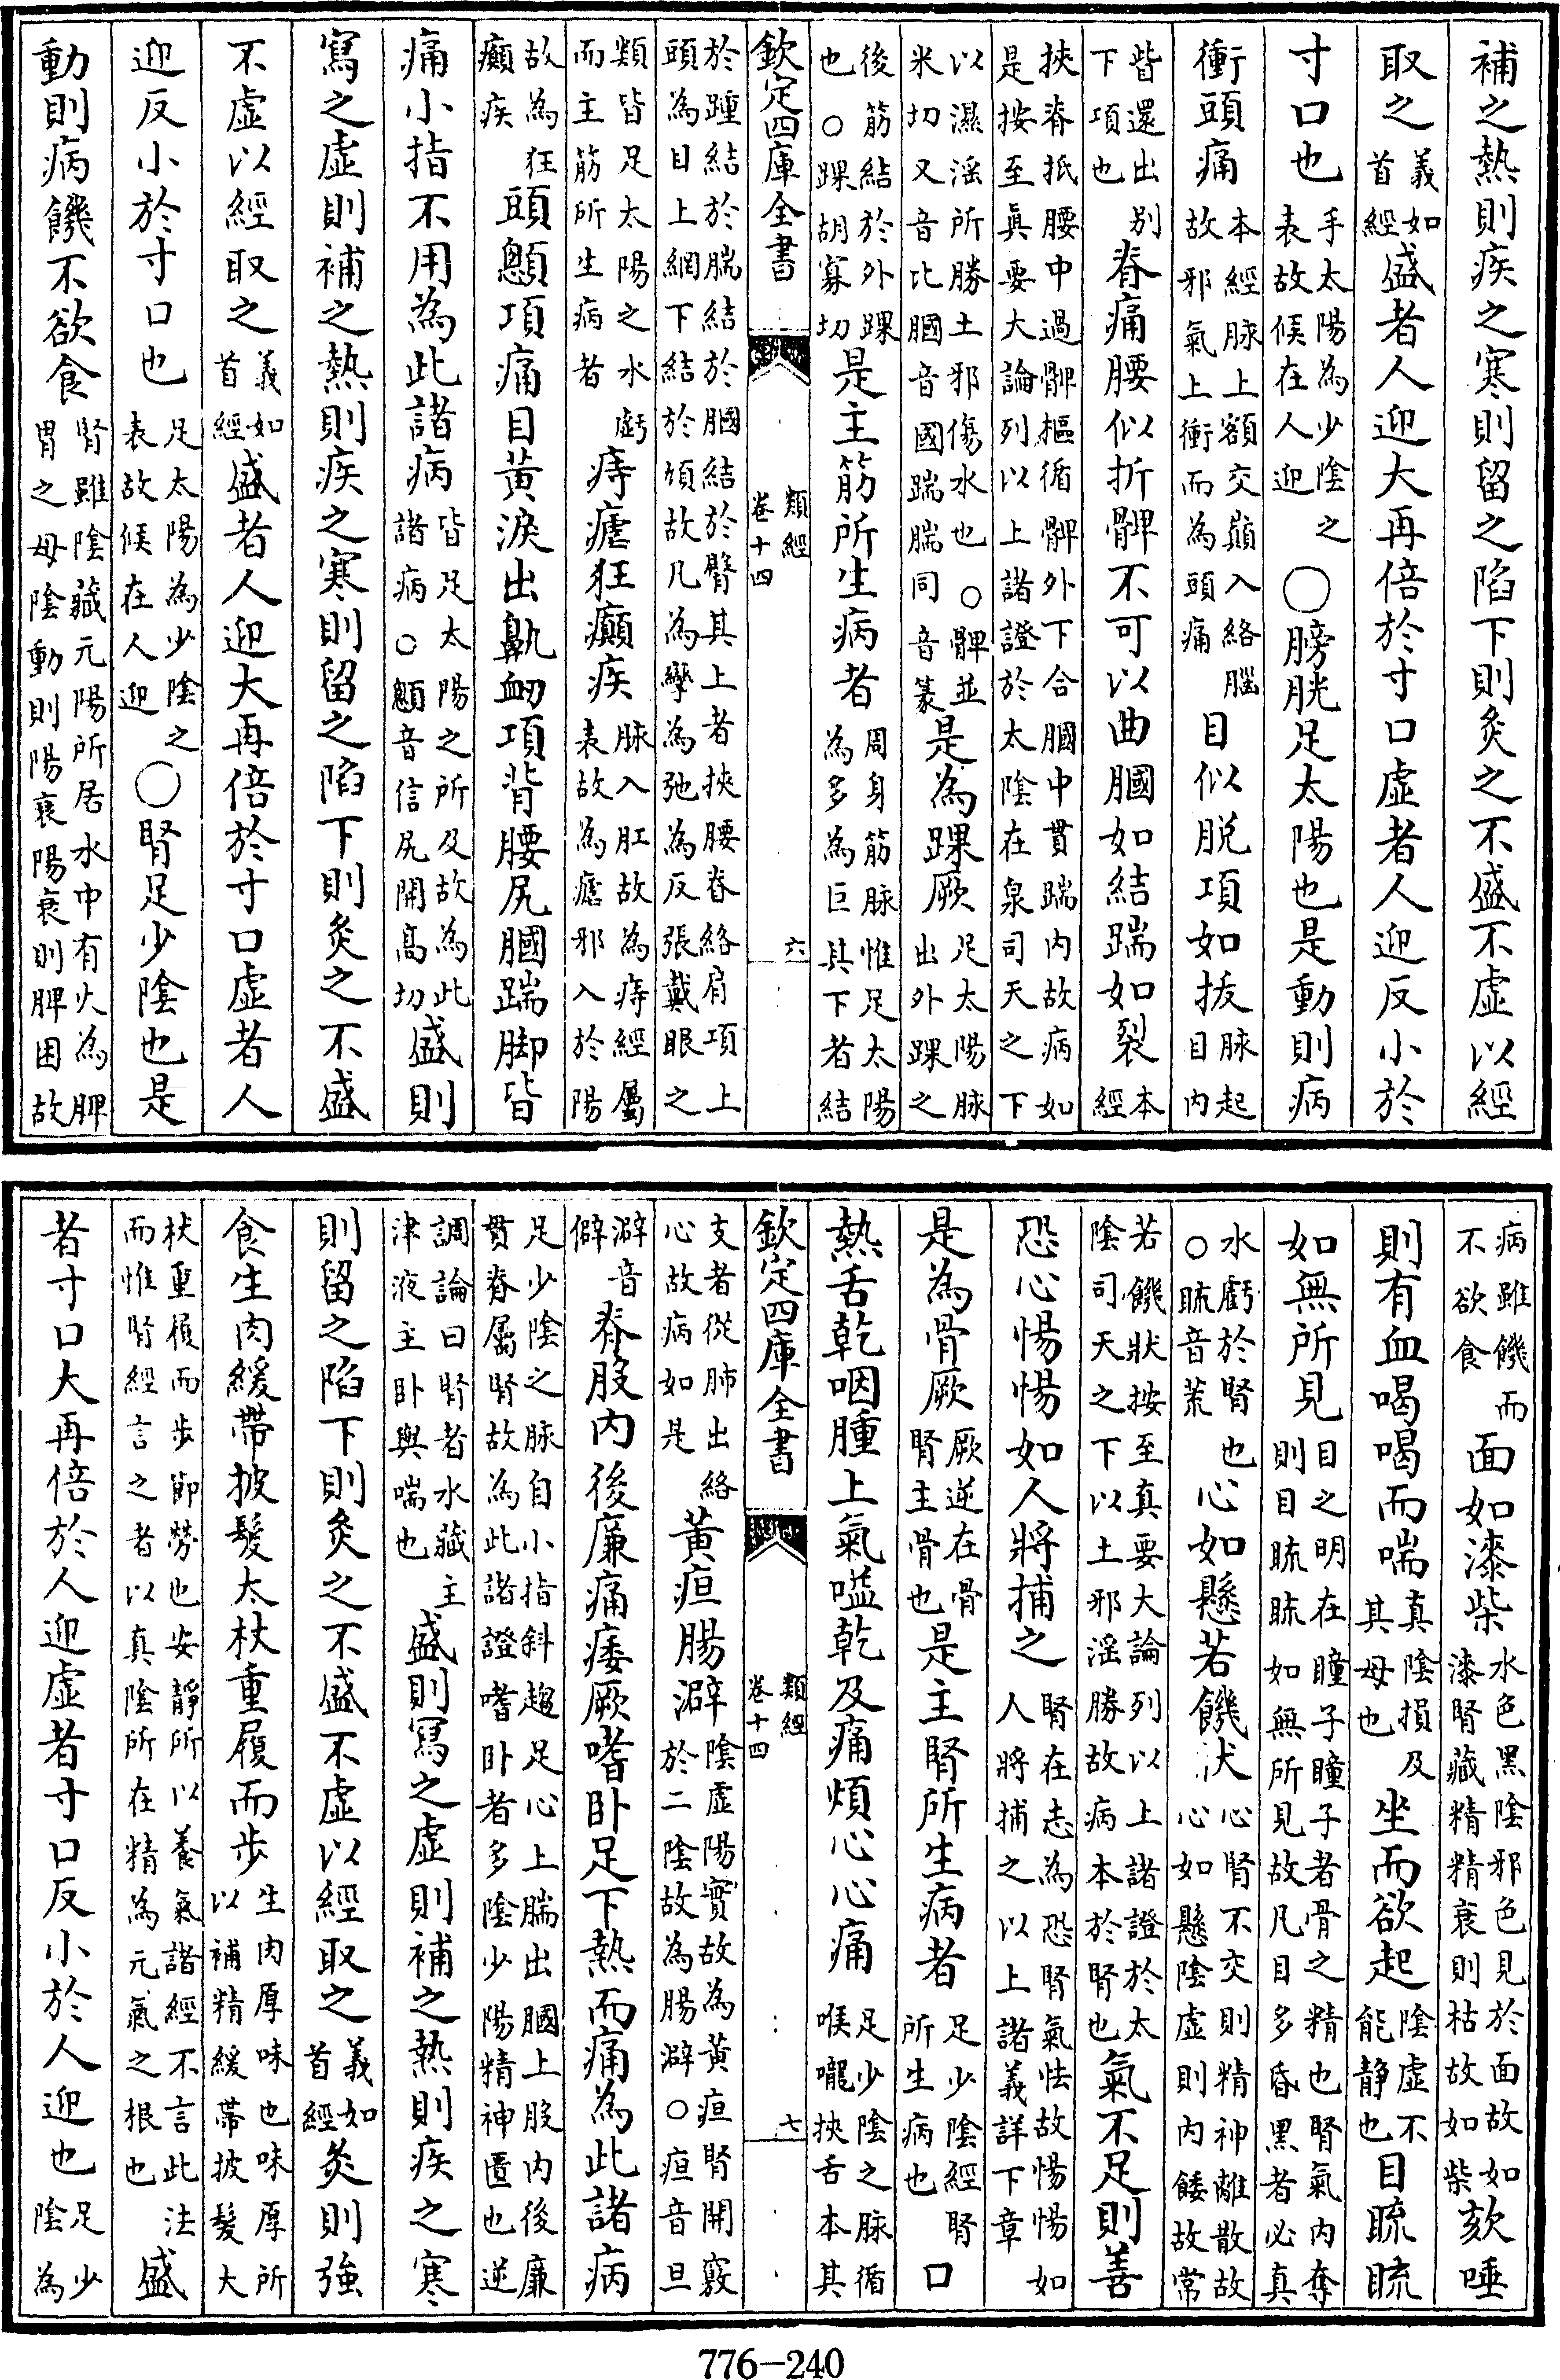 補之熱則疾之寒則留之陷下則灸之不盛不虛以經
取之義如首經盛者人迎大再倍於寸口虛者人迎反小於
寸口也手太陽為少陰之表故候在人迎〇膀胱足太陽也是動則病
衝頭痛本經脉上額交巔入絡腦故邪氣上衝而為頭痛目似脱項如拔脉起目内
眥還出别下項也脊痛腰似折髀不可以曲膕如結踹如裂本經
挾脊抵腰中過髀樞循髀外下合膕中貫踹内故病如是按至眞要大論列以上諸證於太陰在泉司天之下
以濕滛所勝土邪傷水也〇髀並米切又音比膕音國踹腨同音篆是為踝厥足太陽脉出外踝之
後筋結於外踝也〇踝胡寡切是主筋所生病者周身筋脉惟足太陽為多為巨其下者結
欽定四庫全書
類經
卷十四
六
於踵結於腨結於膕結於臀其上者挾腰脊絡肩項上頭為目上網下結於頄故凡為攣為弛為反張戴眼之
類皆足太陽之水虧而主筋所生病者痔瘧狂癲疾脉入肛故為痔經屬表故為瘧邪入於陽
故為狂癲疾頭顖項痛目黄淚出鼽衂項背腰尻膕踹脚皆
痛小指不用為此諸病皆足太陽之所及故為此諸病〇顖音信尻開高切盛則
寫之虛則補之熱則疾之寒則留之陷下則灸之不盛
不虛以經取之義如首經盛者人迎大再倍於寸口虛者人
迎反小於寸口也足太陽為少陰之表故候在人迎〇腎足少陰也是
動則病饑不欲食腎雖陰藏元陽所居水中有火為脾胃之母陰動則陽衰陽衰則脾困故
病雖饑而不欲食面如漆柴水色黑陰邪色見於面故如漆腎藏精精衰則枯故如柴欬唾
則有血喝喝而喘真陰損及其母也坐而欲起陰虛不能静也目䀮䀮
如無所見目之明在瞳子瞳子者骨之精也腎氣内奪則目䀮䀮如無所見故凡目多昏黑者必真
水虧於腎也〇䀮音荒心如懸若饑狀心腎不交則精神離散故心如懸陰虛則内餒故常
若饑狀按至真要大論列以上諸證於太陰司天之下以土邪滛勝故病本於腎也氣不足則善
恐心惕惕如人將捕之腎在志為恐腎氣怯故惕惕如人將捕之以上諸義詳下章
是為骨厥厥逆在骨腎主骨也是主腎所生病者足少陰經腎所生病也口
熱舌乾咽腫上氣嗌乾及痛煩心心痛足少陰之脉循喉嚨挾舌本其
欽定四庫全書
類經
卷十四
七
支者從肺出絡心故病如是黄疸腸澼陰虛陽實故為黄疸腎開竅於二陰故為腸澼〇疸音旦
澼音僻脊股内後廉痛痿厥嗜卧足下熱而痛為此諸病
足少陰之脉自小指斜趨足心上腨出膕上股内後廉貫脊屬腎故為此諸證嗜卧者多陰少陽精神匱也逆
調論曰腎者水藏主津液主卧與喘也盛則寫之虛則補之熱則疾之寒
則留之陷下則灸之不盛不虛以經取之義如首經灸則強
食生肉緩帶披髮太杖重履而步生肉厚味也味厚所以補精緩帶披髮大
杖重履而步節勞也安靜所以養氣諸經不言此法而惟腎經言之者以真陰所在精為元氣之根也盛
者寸口大再倍於人迎虛者寸口反小於人迎也足少陰為
776-240